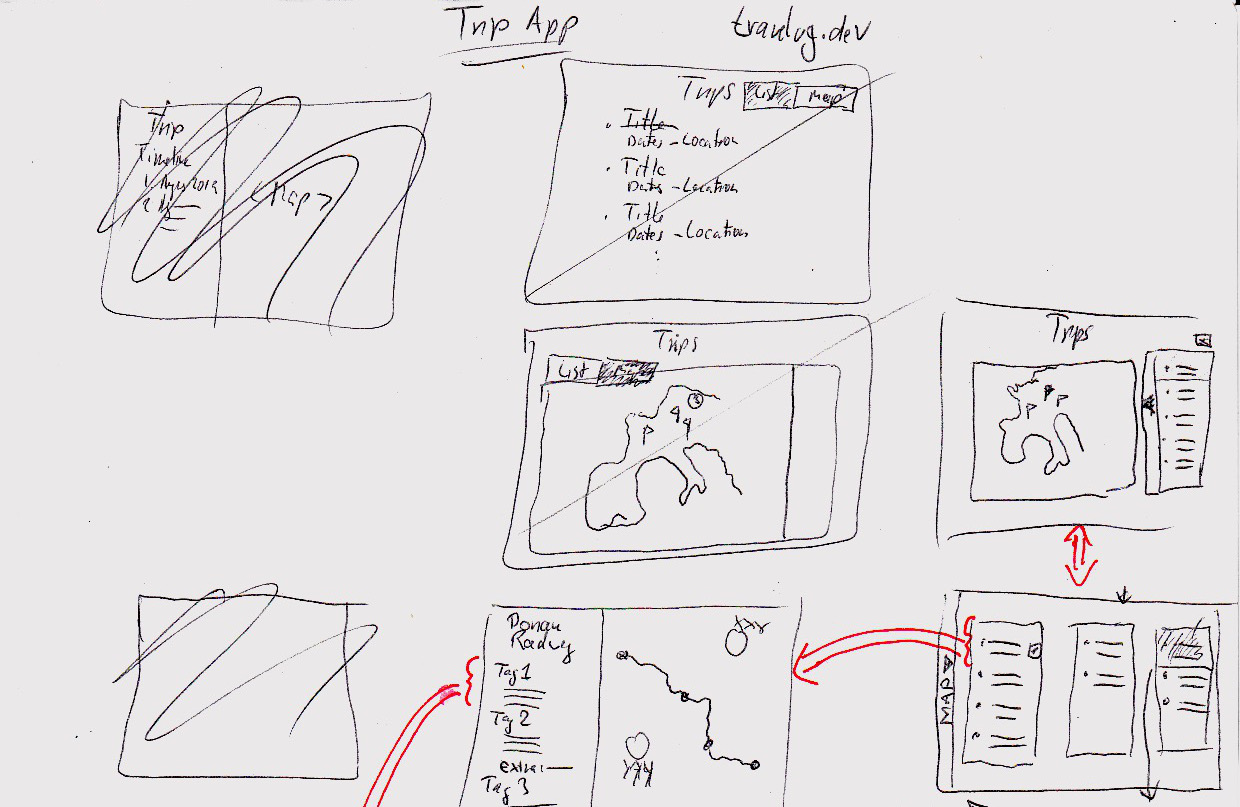 Trip App
travlog.dev
Trip
Timeline
<Map>
Trips List Map
Title
Dates - Location
Title
Dates - Location
Title
Dates - Location
Trips
List
Trips
Donau
Radweg
Tag 1
Tag 2
extra:
Tag 3
MAP